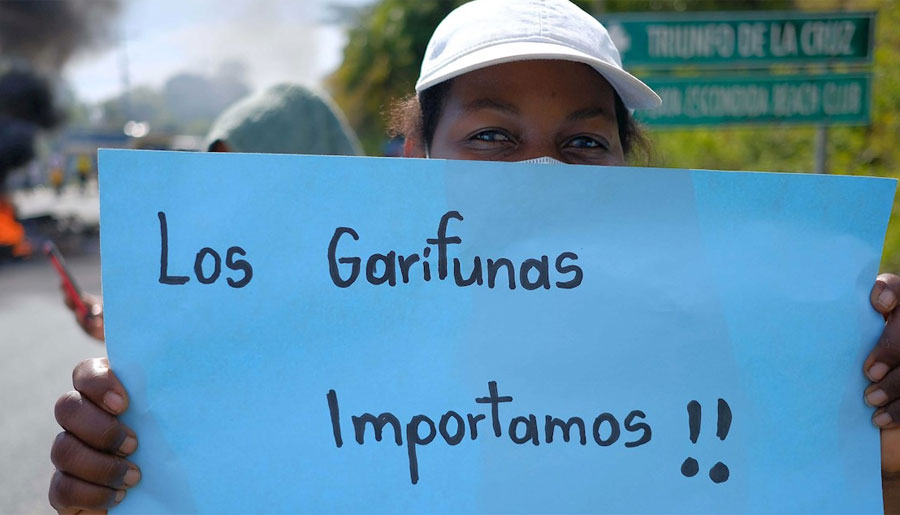 TRIUNFO DE LA CRUZ
ESCONDIDA BEACH CLUB
Los Garífunas
Importamos !!